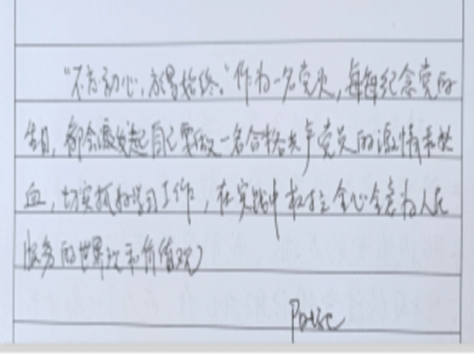 “不忘初心，方得始终。”作为一名党员，每每纪念党的
生日，都会激发起自己要做一名合格共产党员的激情和热
血，切实抓好学习工作，在实践中树立全心全意为人民
服务的世界观和价值观。